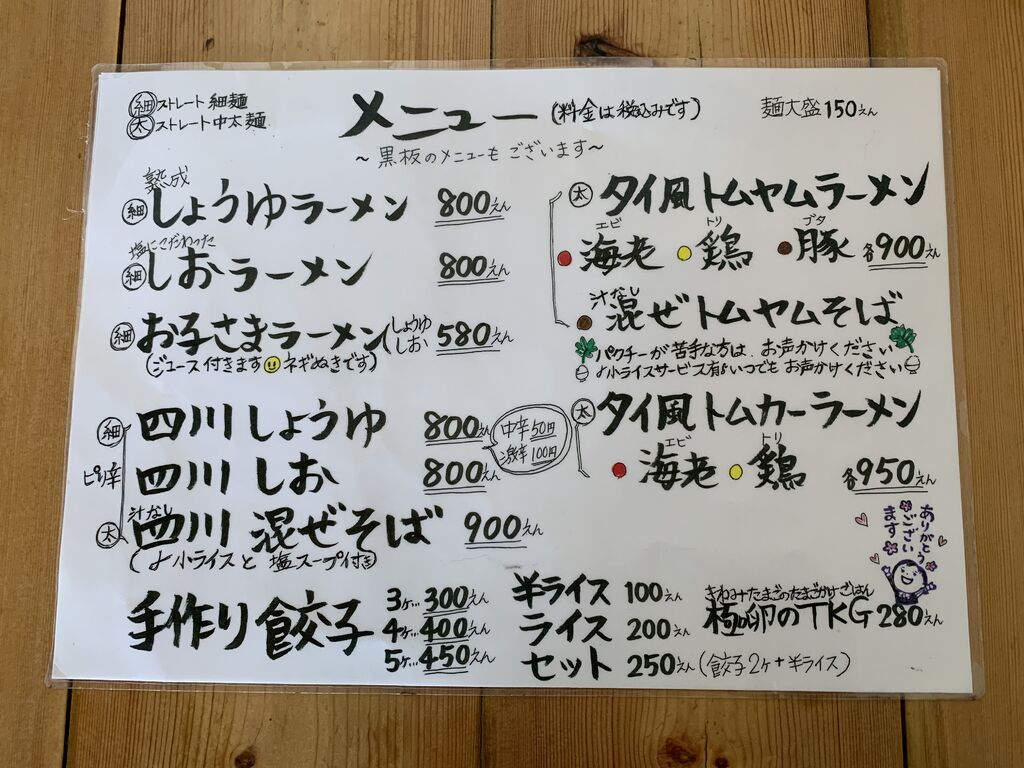 細 ストレート細麺
太 ストレート中太麺
メニュー (料金は税込みです)
麺大盛150えん
~黒板のメニューもございます~
熟成
細 しょうゆラーメン 800えん
塩にこだわった
細 しおラーメン 800えん
細 お子さまラーメン(しょうゆ しお 580えん
(ジュース付きます ネギぬきです)
細 四川しょうゆ 800えん
ピリ辛 四川しお 800えん
中辛50円
激辛100円
汁なし
太 四川 混ぜそば 900えん
(♪小ライスと塩スープ付き)
手作り餃子 3ケ…300えん
4ケ…400えん
5ケ…450えん
太 タイ風トムヤムラーメン
エビ トリ ブタ
海老 鶏 豚 各900えん
汁なし
混ぜトムヤムそば
パクチーが苦手な方は、お声かけください
♪小ライスサービス有♪いつでもお声かけください
太 タイ風トムカーラーメン
エビ トリ
海老 鶏 各950えん
ありがとう
ございい
ます
半ライス 100えん
ライス 200えん
セット 250えん(餃子2ケ+半ライス)
きわみたまごのたまごかけごはん
極卵のTKG 280えん